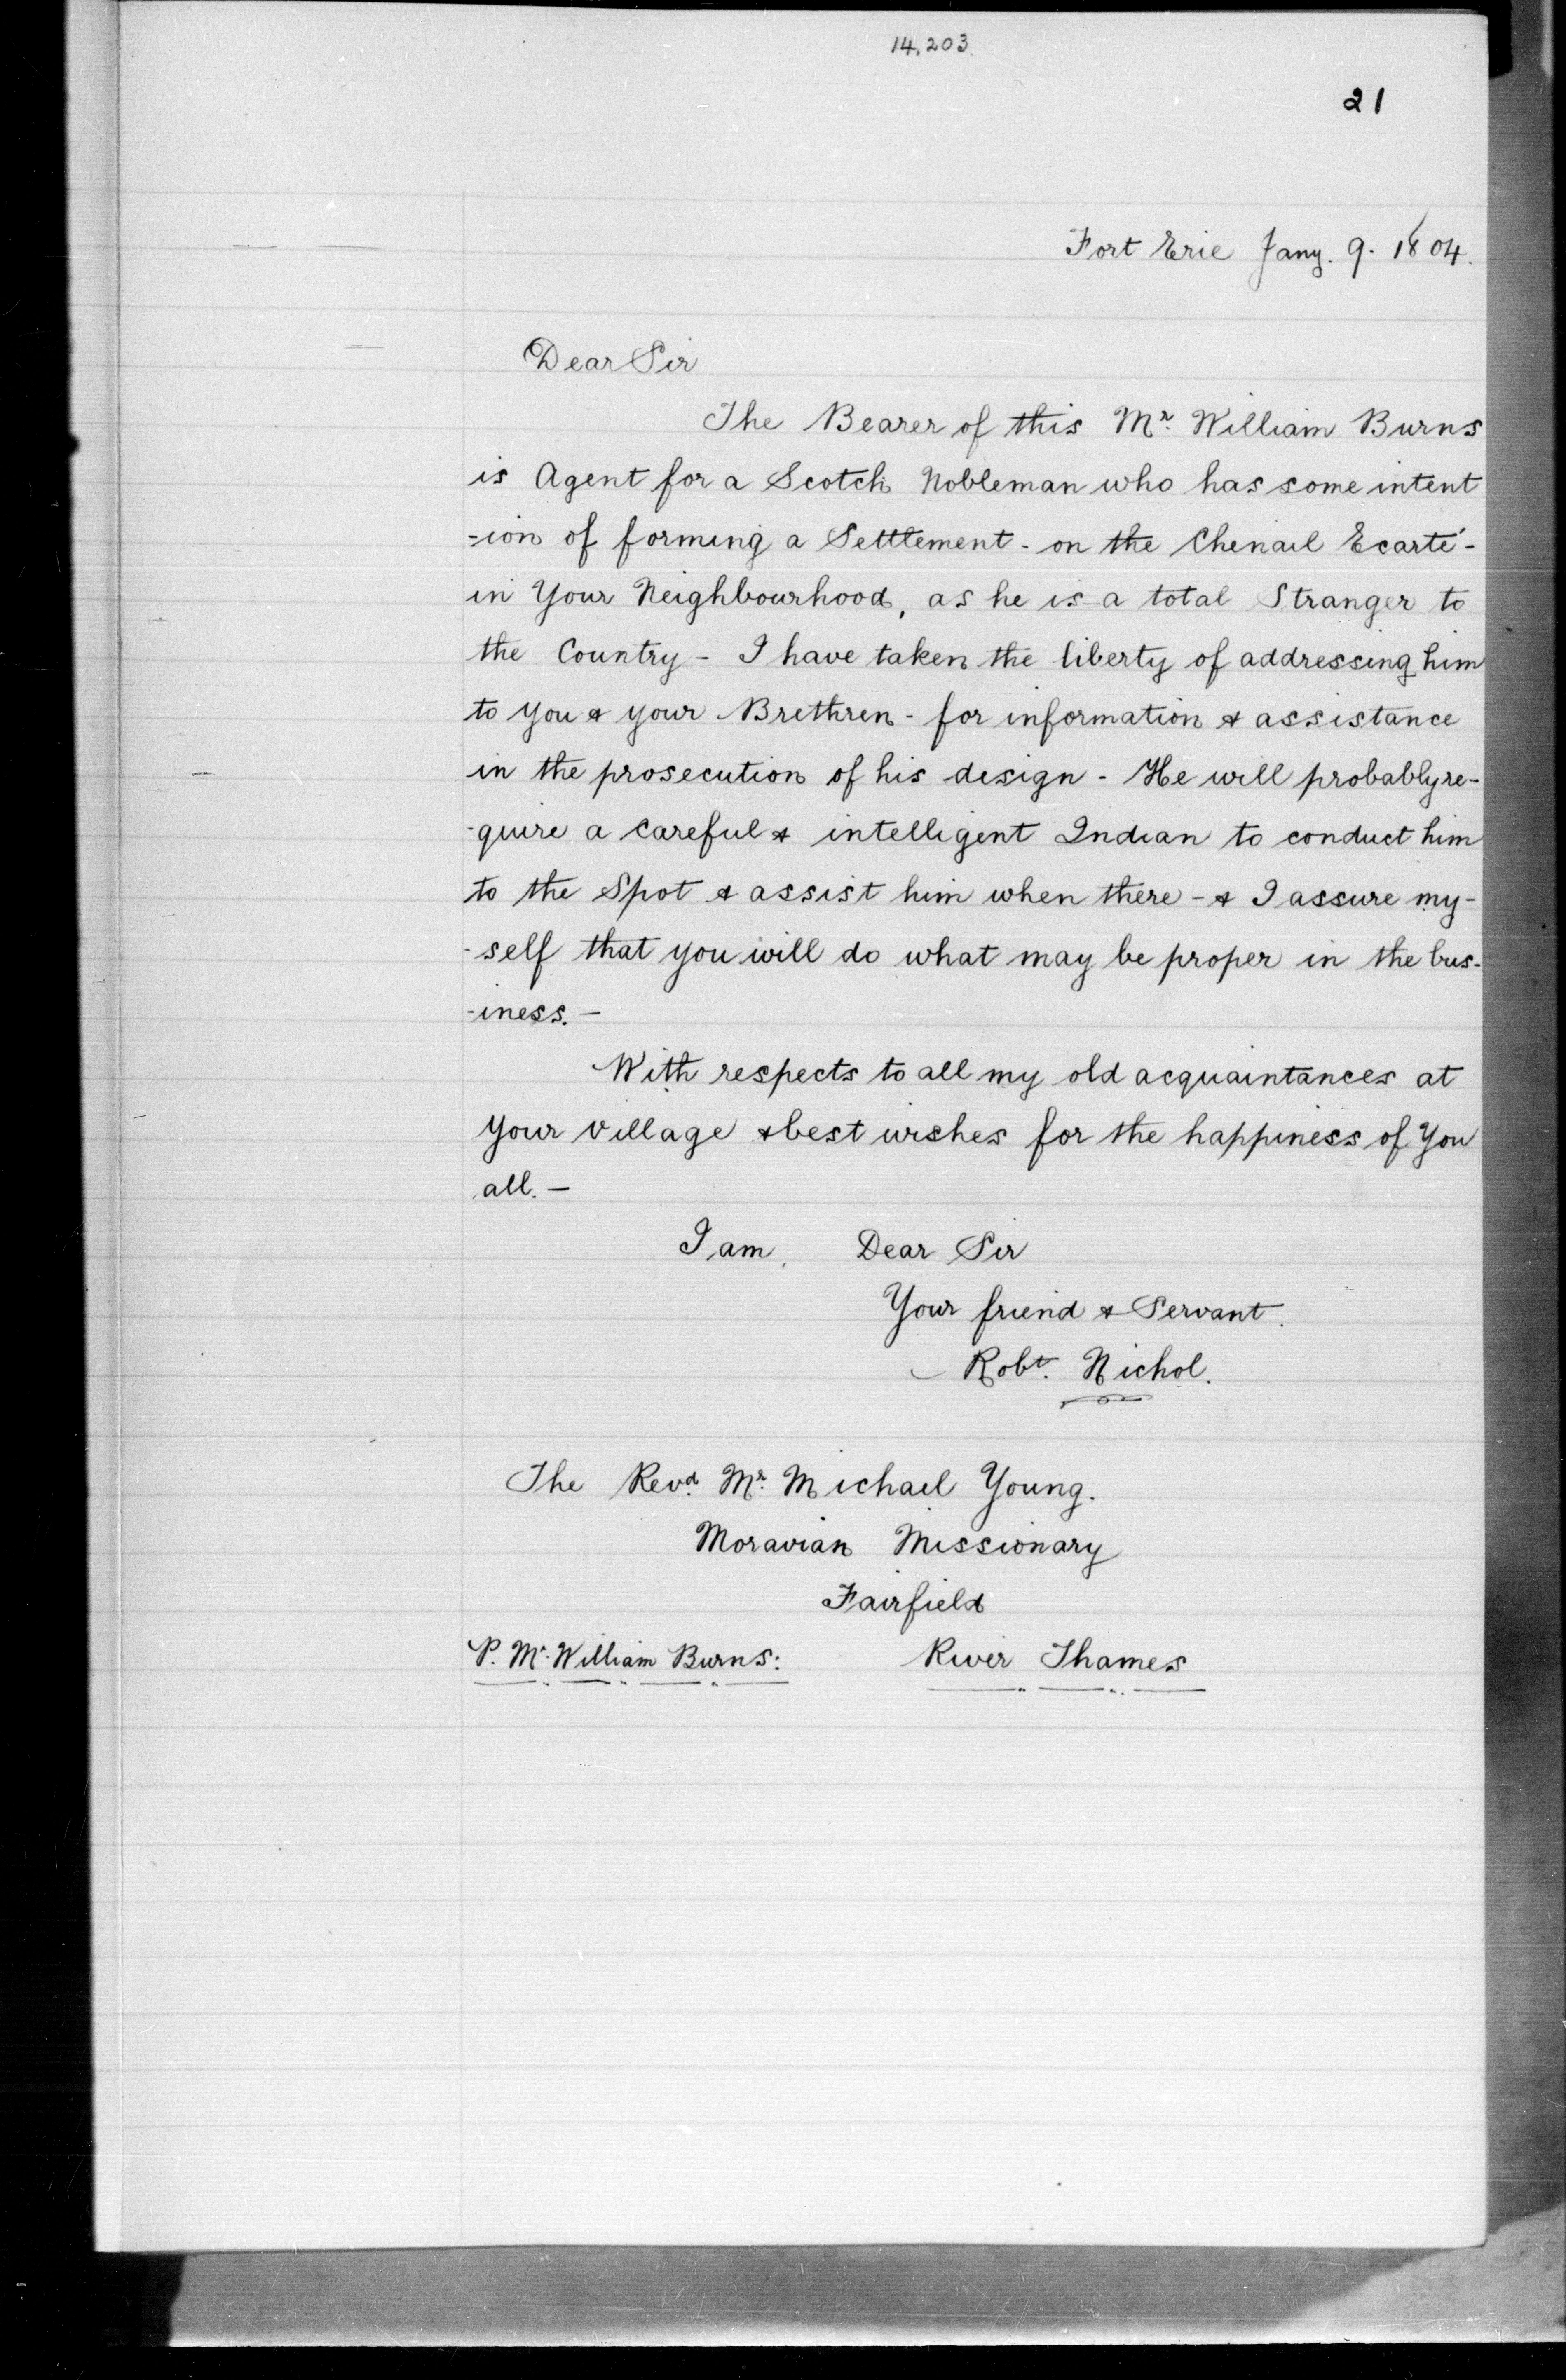 14,203
21
Fort Erie Jany. 9. 1804.
Dear Sir
The Bearer of this Mr. William Burns
is Agent for a Scotch Nobleman who has some intent
-ion of forming a Settlement - on the Chenail Ecarté -
in Your Neighbourhood, as he is a total Stranger to
the Country - I have taken the liberty of addressing him
to you & your Brethren - for information & assistance
in the prosecution of his design - He will probably re-
-quire a Careful & intelligent Indian to conduct him
to the Spot & assist him when there - & I assure my-
-self that you will do what may be proper in the bus-
-iness. -
With respects to all my old acquaintances at
your village & best wishes for the happiness of You
all. -
I am, Dear Sir
Your friend & Servant.
Robt. Nichol.
The Revd. Mr. Michael Young.
Moravian Missionary
Fairfield
P. Mr. William Burns: River Thames